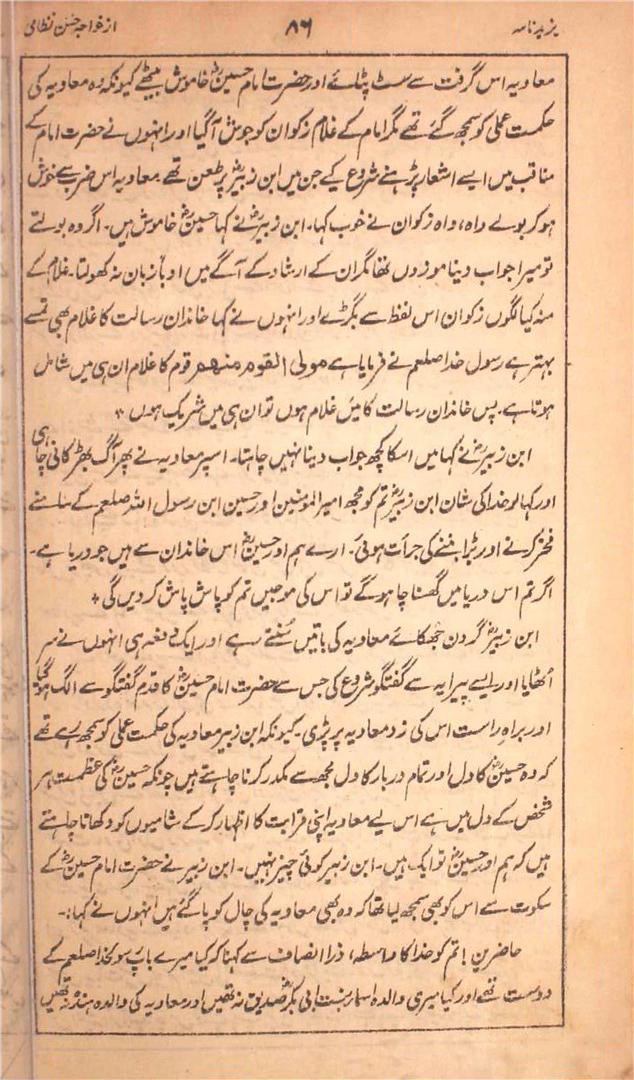 یزیدنامہ ۸۶ از خواجہ حسن نظامی
معاویہ اس گرفت سے سٹ پٹائے اور حضرت امام حسینؓ خاموش بیٹھے کیونکہ وہ معاویہ کی
حکمت عملی کو سمجھ گئے تھے مگر امام کے غلام زکوان کو جوش آگیا اور انہوں نے حضرت امام کے
مناقب میں ایسے اشعار پڑہنے شروع کیے جن میں ابن زبیرؓ پر طعن تھے معاویہ اس ضرب سے خوش
ہو کر بولے واہ، واہ زکوان نے خوب کہا۔ ابن زبیرؓ نے کہا حسینؓ خاموش ہیں۔ اگر وہ بولتے
تو میرا جواب دینا موزوں تھا مگر ان کے ارشاد کے آگے میں ادباً زبان نہ کھولتا۔ غلام کے
منہ کیا لگوں زکوان اس لفظ سے بگڑے اور انہوں نے کہا خاندان رسالت کا غلام بھی تمسے
بہتر ہے رسول خدا صلعم نے فرمایا ہے مولی القوم منھم قوم کا غلام ان ہی میں شامل
ہوتا ہے۔ پس خاندان رسالت کا میں غلام ہوں تو ان ہی میں شریک ہوں ٭
ابن زبیرؓ نے کہا میں اسکا کچھ جواب دینا نہیں چاہتا۔ اسپر معاویہ نے پھر آگ بھڑکانی چاہی
اور کہا لو خدا کی شان ابن زبیرؓ تم کو مجھ امیرالمومنین اور حسین ابن رسول اللہ صلعم کے سامنے
فخر کرنے اور بڑا بننے کی جرأت ہوئی۔ ارے ہم اور حسینؓ اس خاندان سے ہیں جو دریا ہے۔
اگر تم اس دریا میں گھسنا چاہو گے تو اس کی موجیں تم کو پاش پاش کردیں گی ٭
ابن زبیرؓ گردن جھکائے معاویہ کی باتیں سُنتے رہے اور ایک دفعہ ہی انہوں نے سر
اُٹھایا اور ایسے پیرایہ سے گفتگو شروع کی جس سے حضرت امام حسینؓ کا قدم گفتگو سے الگ ہو گیا
اور براہِ راست اس کی زد معاویہ پر پڑی۔ کیونکہ ابن زبیر معاویہ کی حکمت عملی کو سمجھ رہے تھے
کہ وہ حسینؓ کا دل اور تمام دربار کا دل مجھ سے مکدر کرنا چاہتے ہیں چونکہ حسینؓ کی عظمت ہر
شخص کے دل میں ہے اس لیے معاویہ اپنی قرابت کا اظہار کر کے شامیوں کو دکھانا چاہتے
ہیں کہ ہم اور حسینؓ تو ایک ہیں۔ ابن زبیر کوئی چیز نہیں۔ ابن زبیر نے حضرت امام حسینؓ کے
سکوت سے اس کو بھی سمجھ لیا تھا کہ وہ بھی معاویہ کی چال کو پا گئے ہیں انہوں نے کہا:۔
حاضرین! تم کو خدا کا واسطہ، ذرا انصاف سے کہنا کہ کیا میرے باپ رسولخدا صلعم کے
دوست نہ تھے اور کیا میری والدہ اسماء بنت ابی بکرؓ صدیق نہ تھیں اور معاویہ کی والدہ ہندہ نہ تھیں